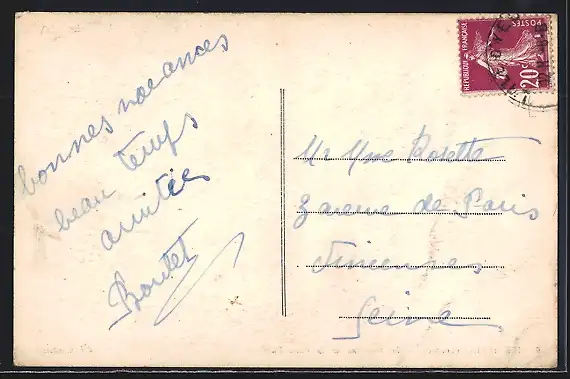 bonnes vacances
beau temps
amitiés
Boutet
Mr Mme Balette
3 avenue de Paris
Vincennes
Seine
REPUBLIQUE FRANÇAISE
POSTES
20c